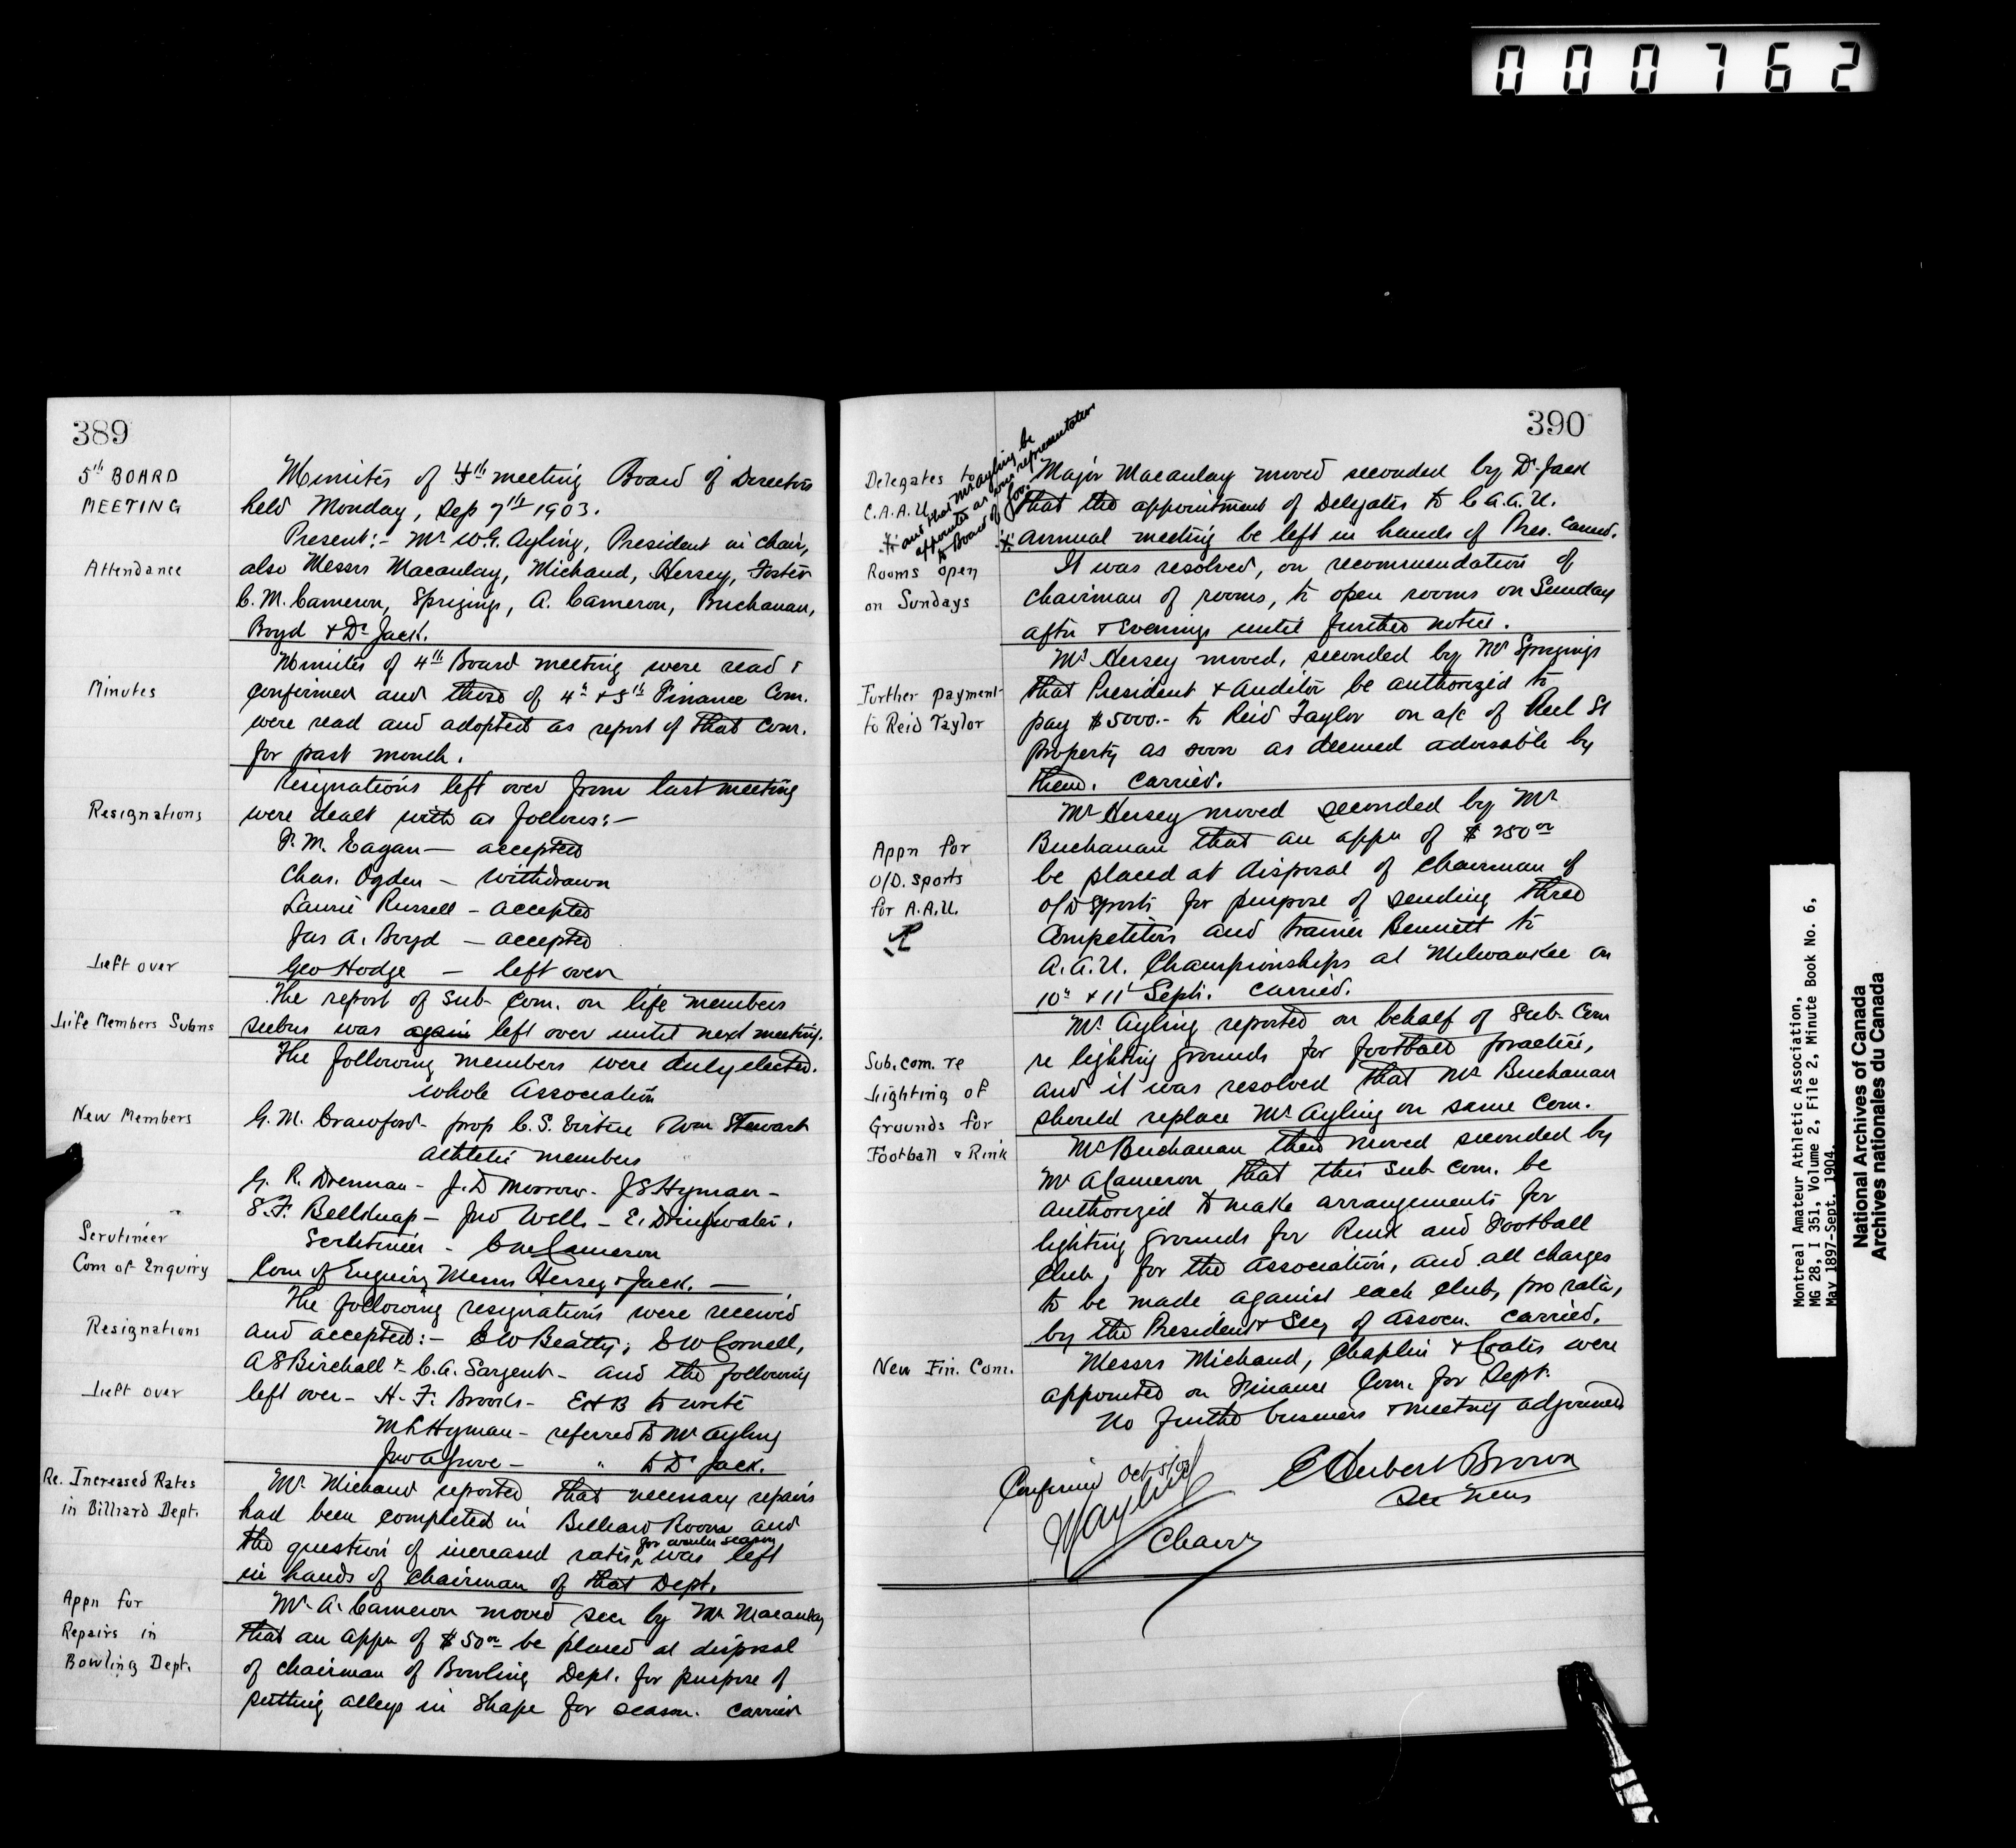 000762
389
5th BOARD
MEETING
Minutes of 4th meeting Board of Directors
held Monday, Sep 7th 1903.
Attendance
Present:- Mr W.G. Ayling, President in chair,
also Messrs Macaulay, Michaud, Hersey, Foster
C.M. Cameron, Spriggings, A. Cameron, Buchanan,
Boyd & Dr Jack.
Minutes
Minutes of 4th Board meeting were read &
confirmed and those of 4th & 5th Finance Com.
were read and adopted as report of that Com.
for past month.
Resignations
Resignations left over from last meeting
were dealt with as follows:-
F. M. Eagan — accepted
Chas. Ogden — withdrawn
Laurie Russell - accepted
Jas A. Boyd — accepted
Left over
Geo Hodge — left over
Life Members Subns
The report of Sub- Com. on life members
subns was again left over until next meeting.
The following members were duly elected.
whole Association
New Members
G. M. Crawford - prop C. S. Wm Stewart
Athletic members
G. R. Drennan - J. D Morrow - J S Hyman -
S. F. Bellknap - Jno Wells - E. Drinkwater.
Scrutineer
Scrutineer - C M Cameron
Com of Enquiry
Com of Enquiry Messrs Hersey & Jack. —
Resignations
The following resignations were received
and accepted:- E W Beatty; E W Cornell,
A S Birchall & C. A. Sargent - and the following
Left over
left over - H. F. Brooks - EHB to write
M S Hyman - referred to Mr Ayling
Jno A Grove - " to Dr Jack.
Re. Increased Rates
in Billiard Dept.
Mr Michaud reported that necessary repairs
had been completed in Billiard Room and
the question of increased rates for winter season was left
in hands of Chairman of that Dept.
Appn for
Repairs in
Bowling Dept.
Mr A. Cameron moved sec by Mr Macaulay
that an appn of $50 00 be placed at disposal
of chairman of Bowling Dept. for purpose of
putting alleys in shape for season. Carried
390
Delegates to
C.A.A.U.
* and that Mr Ayling be
appointed as our representative
to Board of Gov.
Major Macaulay moved seconded by Dr Jack
that the appointment of Delegates to C.A.A.U.
* annual meeting be left in hands of Pres. Carried.
Rooms open
on Sundays
It was resolved, on recommendation of
chairman of rooms, to open rooms on Sunday
after & Evenings until further notice.
Further payment
to Reid Taylor
Mr Hersey moved, seconded by Mr Spriggings
that President & Auditor be authorized to
pay $5000.- to Reid Taylor on a/c of Peel St
Property as soon as deemed advisable by
them. Carried.
Appn for
O/D. sports
for A.A.U.
Mr Hersey moved seconded by Mr
Buchanan that an appn of $250 00
be placed at disposal of Chairman of
O/D Sports for purpose of sending three
Competitors and trainer Bennett to
A.A.U. Championships at Milwaukee on
10th & 11 Septr. Carried.
Sub. com. re
Lighting of
Grounds for
Football & Rink
Mr Ayling reported on behalf of Sub- Com
re lighting grounds for football practice,
and it was resolved that Mr Buchanan
should replace Mr Ayling on same Com.
Mr Buchanan then moved seconded by
Mr A Cameron that this sub com. be
authorized to make arrangements for
lighting grounds for Rink and Football
Club, for the Association, and all charges
to be made against each club, pro rata,
by the President & Secy of Assocn. Carried.
New Fin. Com.
Messrs Michaud, Chaplin & Coates were
appointed on Finance Com. for Sept.
No further business & meeting adjourned
Confirmed Oct 5/03
E Herbert Brown
Sec Treas
W Ayling
Chairn
Montreal Amateur Athletic Association,
MG 28, I 351, Volume 2, File 2, Minute Book No. 6,
May 1897-Sept. 1904.
National Archives of Canada
Archives nationales du Canada